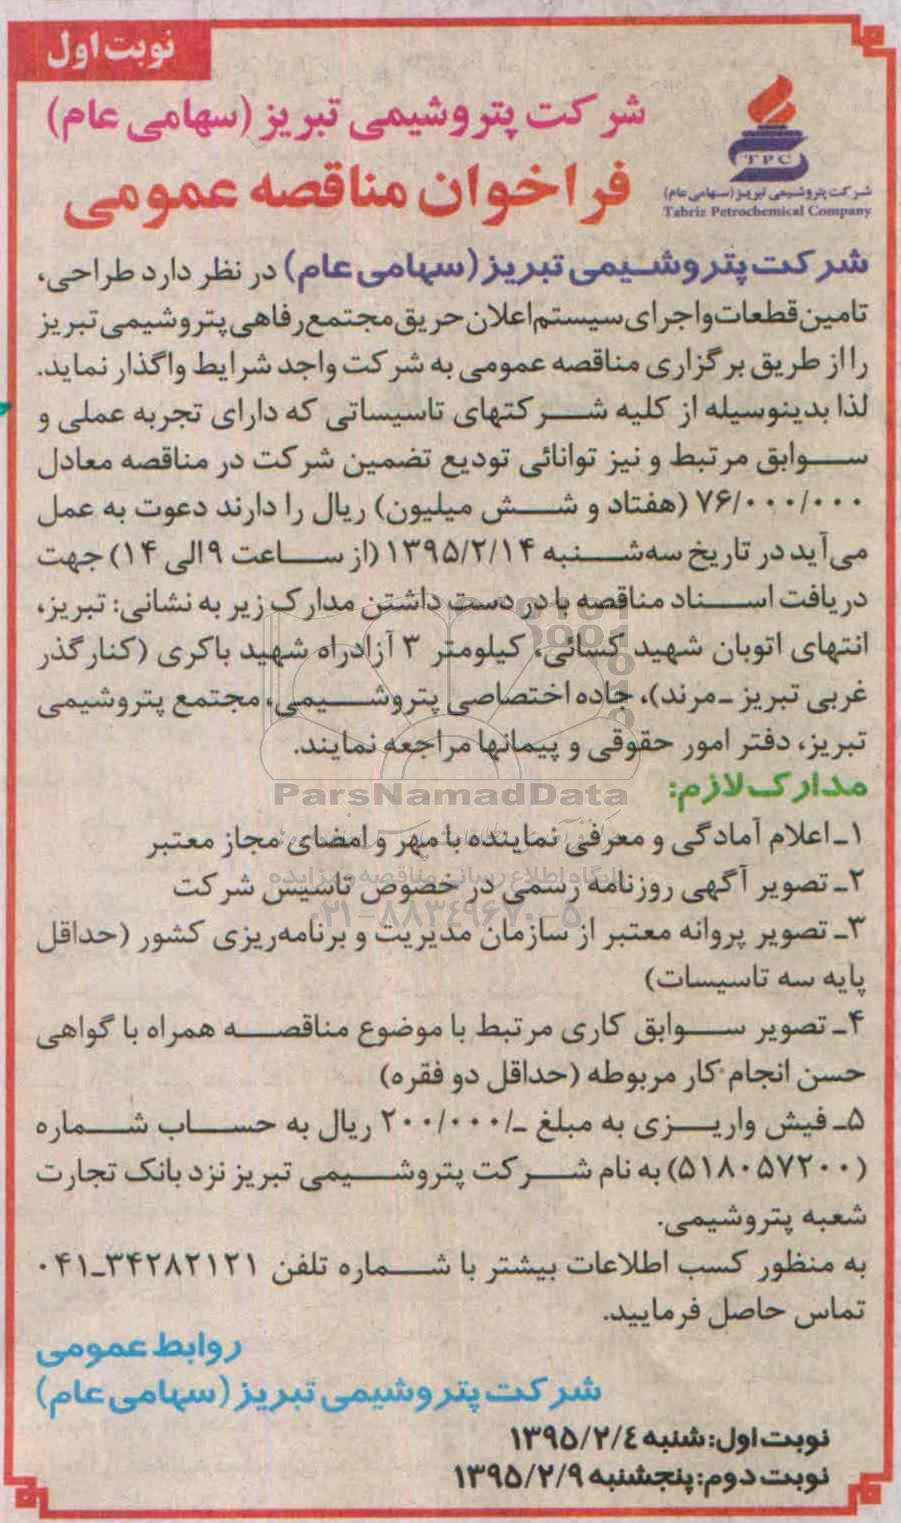 نوبت اول
شرکت پتروشیمی تبریز (سهامی عام)
فراخوان مناقصه عمومی
TPC
شرکت پتروشیمی تبریز (سهامی عام)
Tabriz Petrochemical Company
شرکت پتروشیمی تبریز (سهامی عام) در نظر دارد طراحی،
تامین قطعات و اجرای سیستم اعلان حریق مجتمع رفاهی پتروشیمی تبریز
را از طریق برگزاری مناقصه عمومی به شرکت واجد شرایط واگذار نماید.
لذا بدینوسیله از کلیه شرکتهای تاسیساتی که دارای تجربه عملی و
سوابق مرتبط و نیز توانائی تودیع تضمین شرکت در مناقصه معادل
۷۶/۰۰۰/۰۰۰ (هفتاد و شش میلیون) ریال را دارند دعوت به عمل
می‌آید در تاریخ سه‌شنبه ۱۳۹۵/۲/۱۴ (از ساعت ۹ الی ۱۴) جهت
دریافت اسناد مناقصه با در دست داشتن مدارک زیر به نشانی: تبریز،
انتهای اتوبان شهید کسائی، کیلومتر ۳ آزادراه شهید باکری (کنارگذر
غربی تبریز ـ مرند)، جاده اختصاصی پتروشیمی، مجتمع پتروشیمی
تبریز، دفتر امور حقوقی و پیمانها مراجعه نمایند.
ParsNamadData
مدارک لازم:
۱ـ اعلام آمادگی و معرفی نماینده با مهر و امضای مجاز معتبر
پایگاه اطلاع رسانی مناقصه و مزایده
۲ـ تصویر آگهی روزنامه رسمی در خصوص تاسیس شرکت
۰۲۱-۸۸۳۴۹۶۷۰-۵
۳ـ تصویر پروانه معتبر از سازمان مدیریت و برنامه‌ریزی کشور (حداقل
پایه سه تاسیسات)
۴ـ تصویر سوابق کاری مرتبط با موضوع مناقصه همراه با گواهی
حسن انجام کار مربوطه (حداقل دو فقره)
۵ـ فیش واریزی به مبلغ ـ/۲۰۰/۰۰۰ ریال به حساب شماره
(۵۱۸۰۵۷۲۰۰) به نام شرکت پتروشیمی تبریز نزد بانک تجارت
شعبه پتروشیمی.
به منظور کسب اطلاعات بیشتر با شماره تلفن ۳۴۲۸۲۱۲۱ـ۰۴۱
تماس حاصل فرمایید.
روابط عمومی
شرکت پتروشیمی تبریز (سهامی عام)
نوبت اول: شنبه ۱۳۹۵/۲/۴
نوبت دوم: پنجشنبه ۱۳۹۵/۲/۹